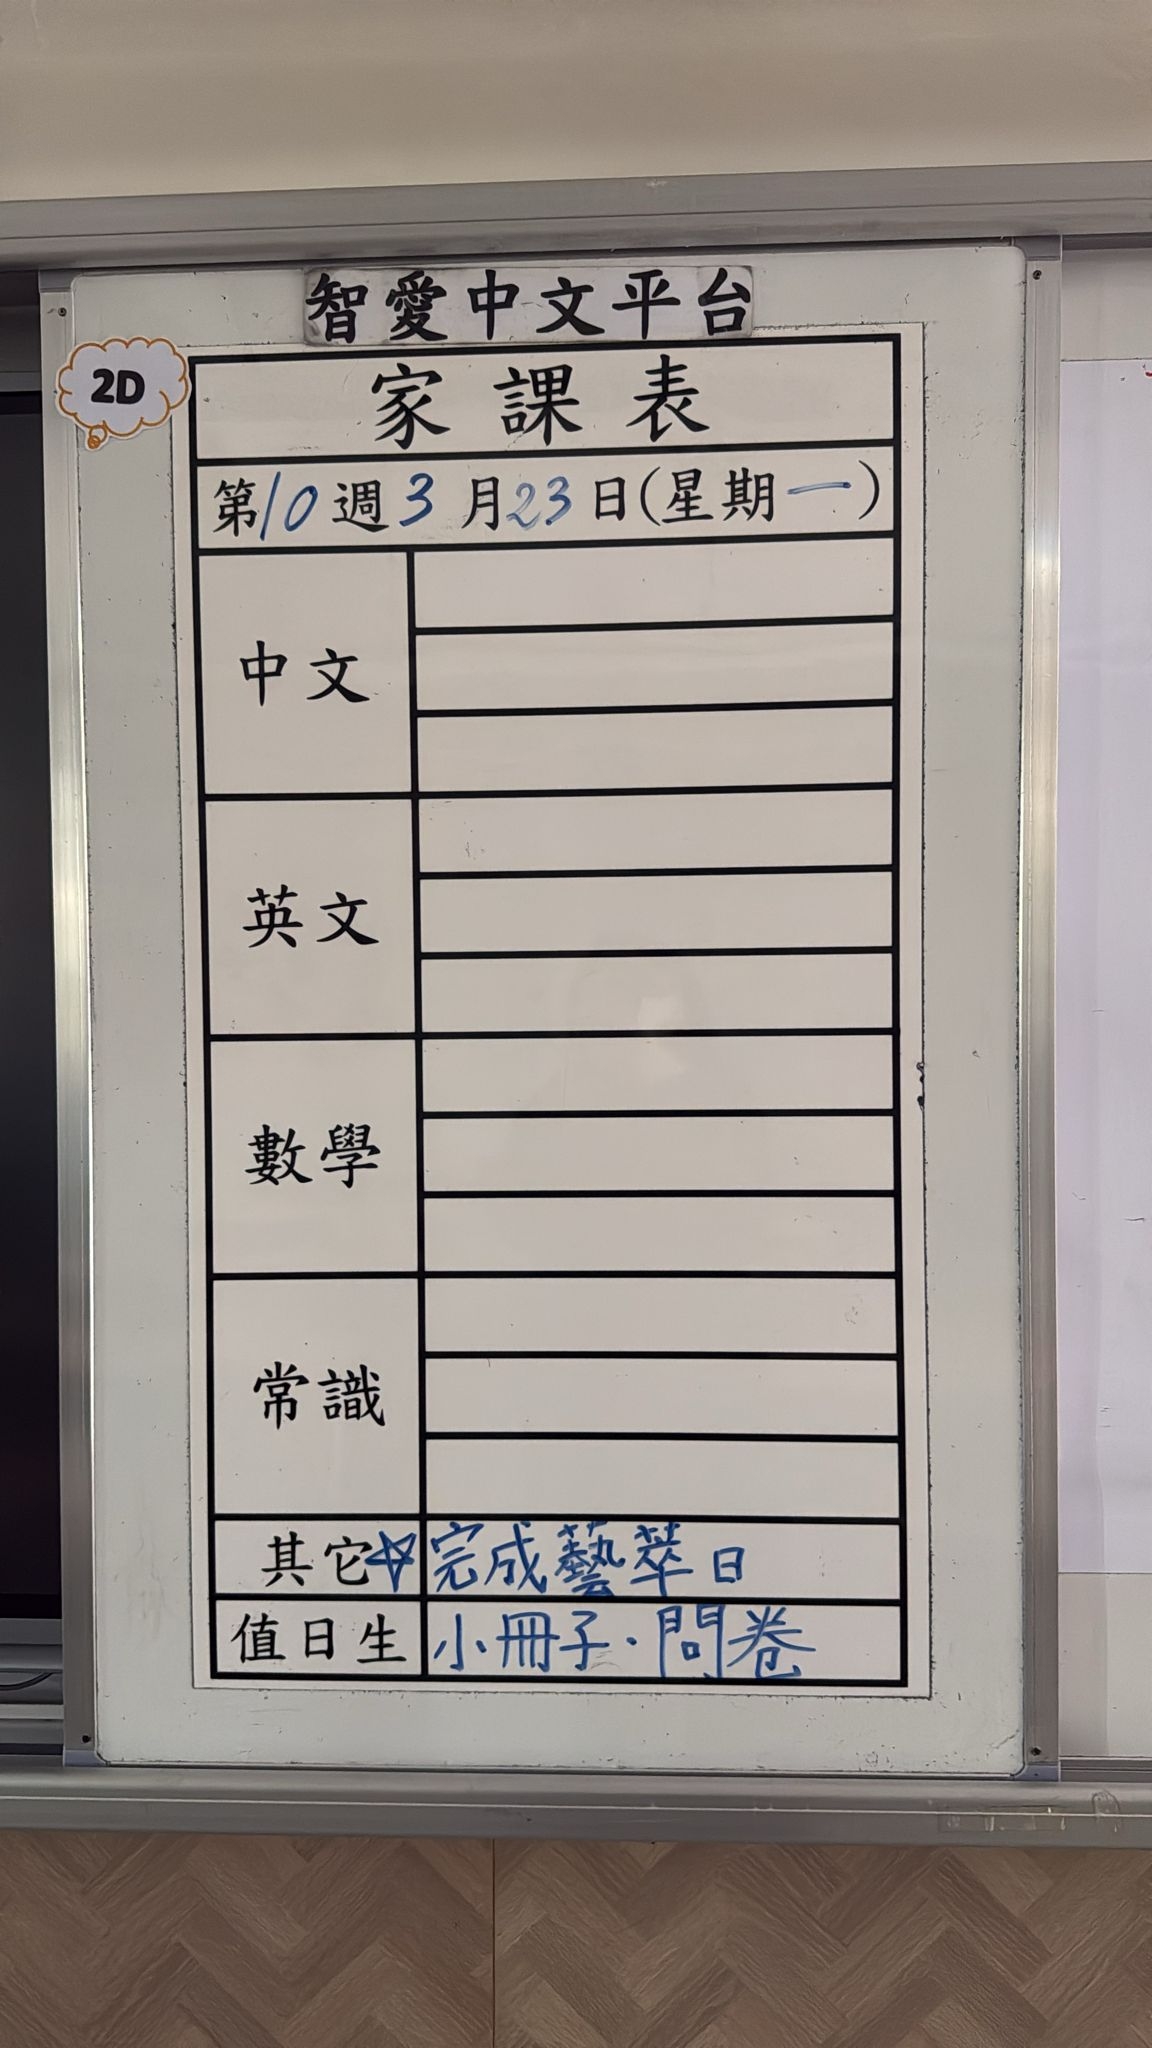 智愛中文平台
2D
家課表
第10週3月23日(星期一)
中文
英文
數學
常識
其它☆完成藝萃日
值日生 小冊子·問卷